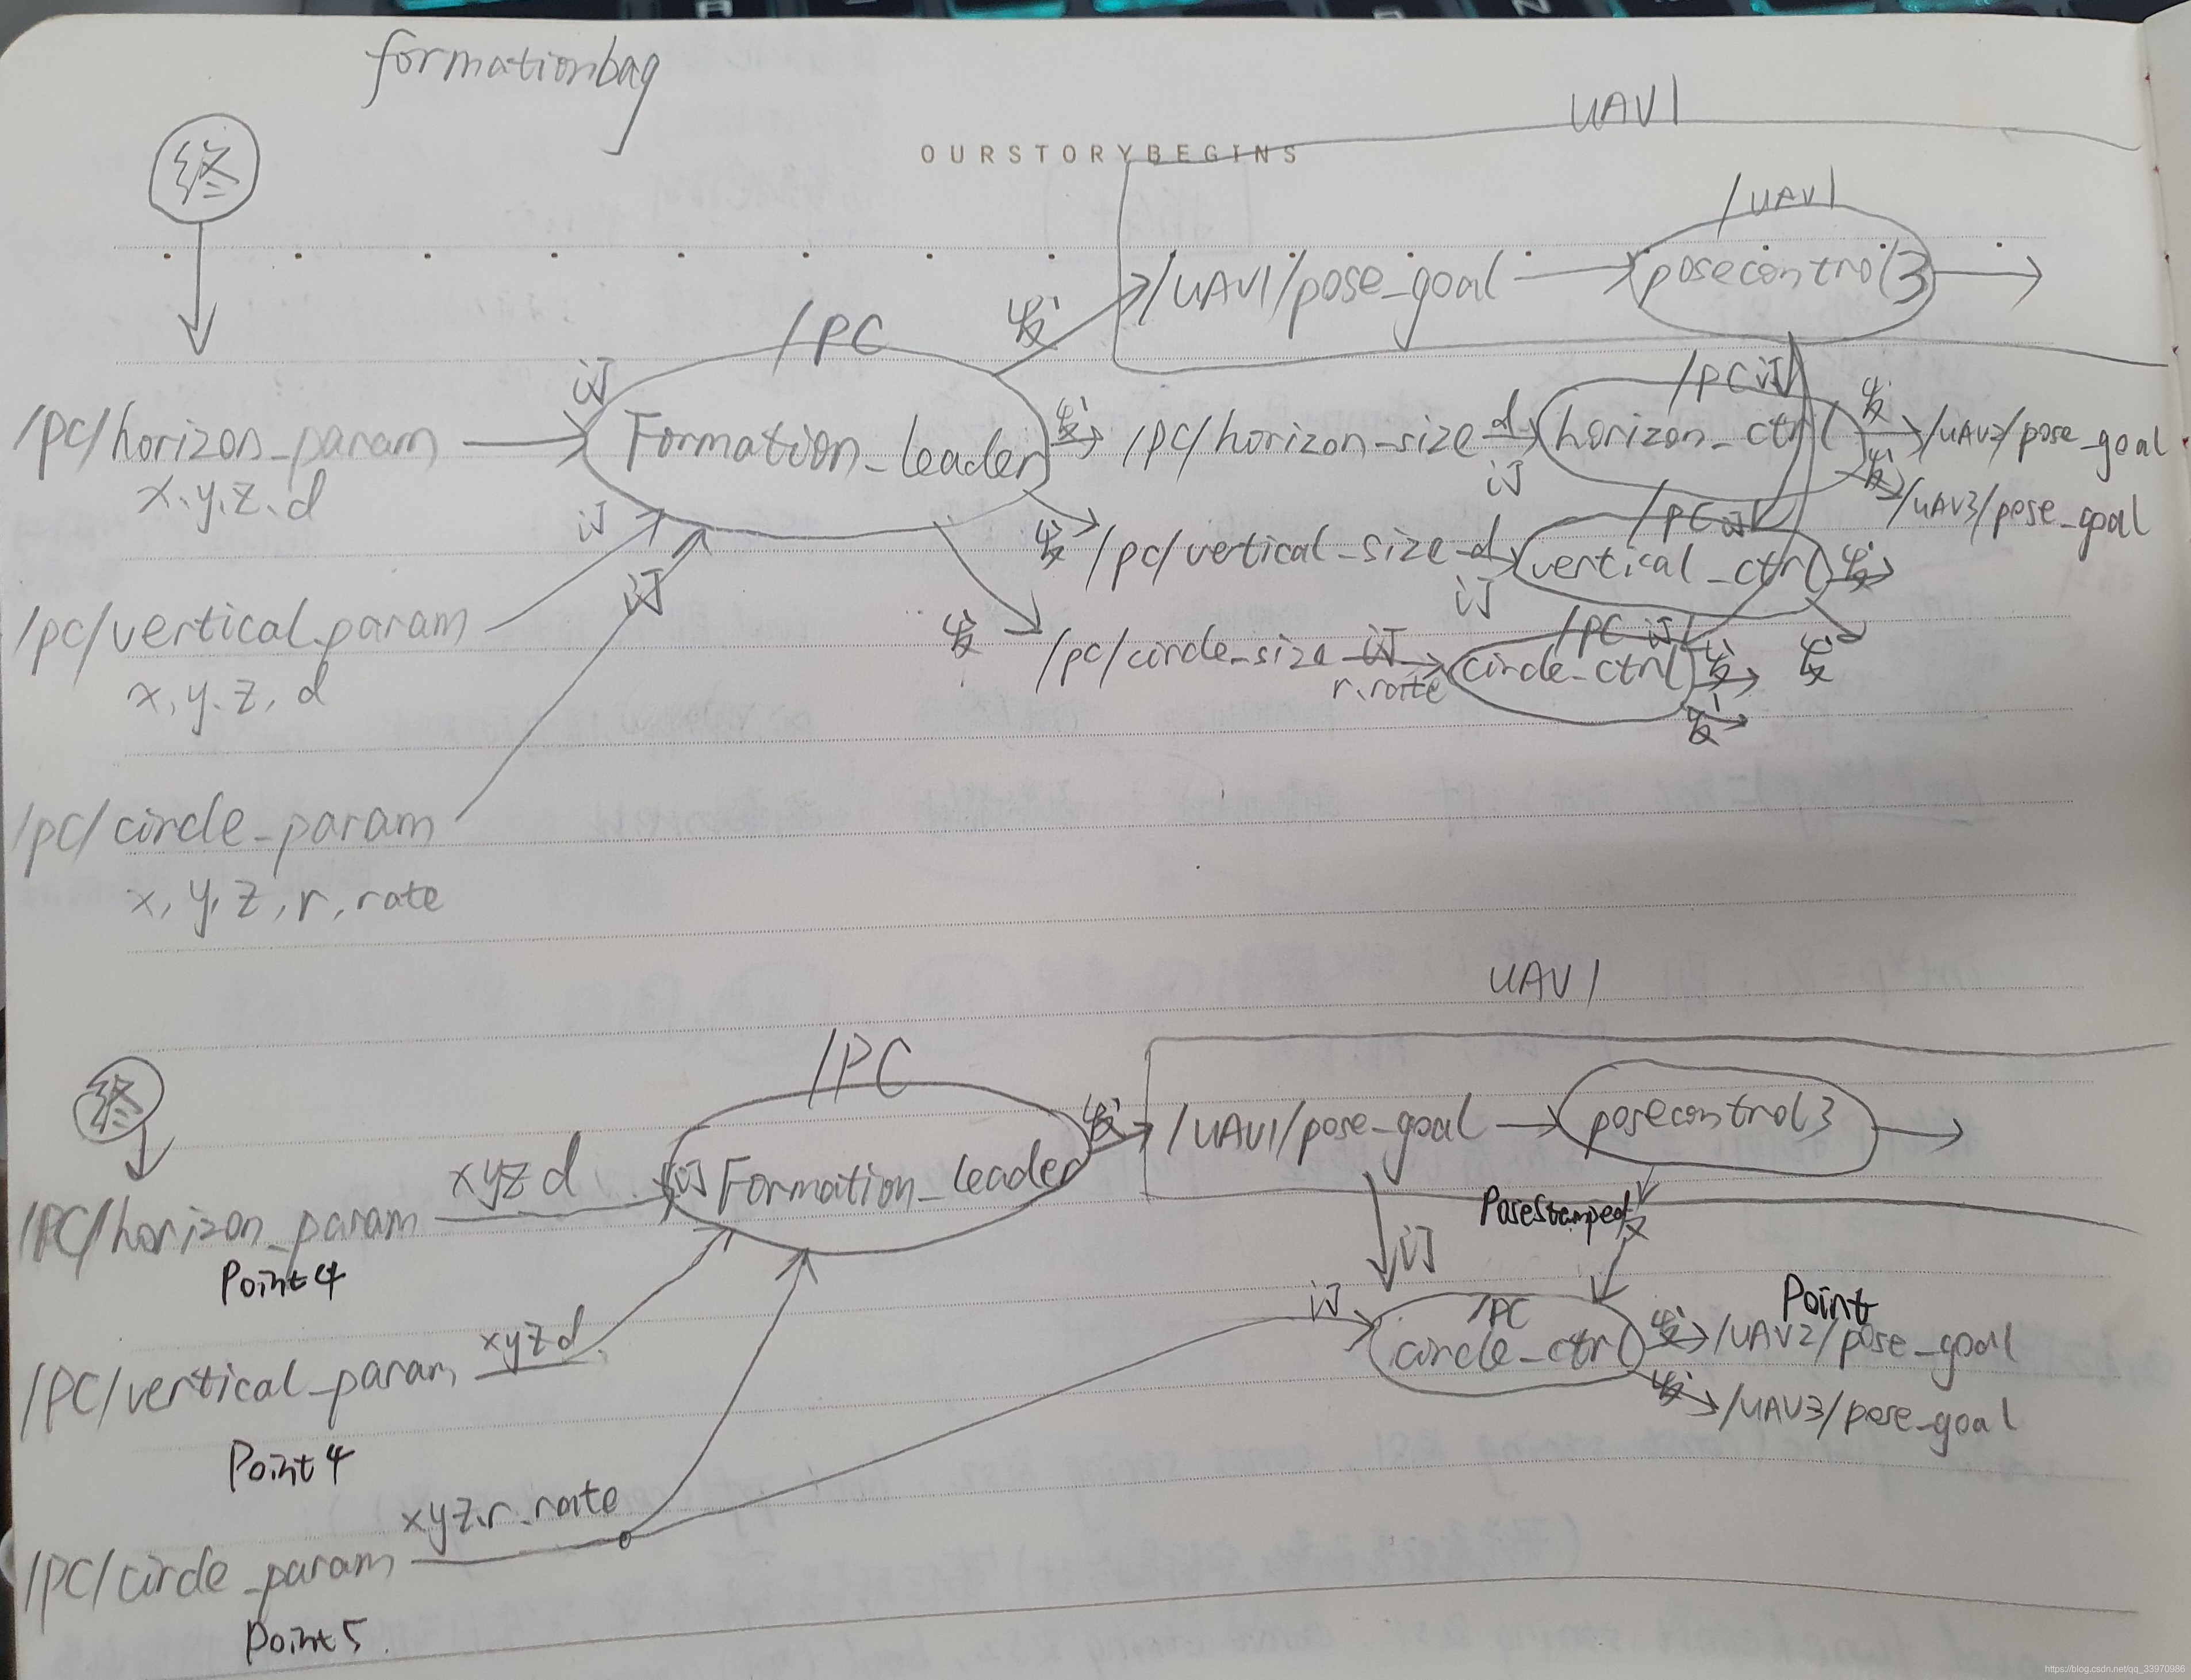 formationbag
UAV1
OURSTORYBEGINS
终
/UAV1
发 /UAV1/pose_goal posecontrol3
/PC
订
/PC 订
/pc/horizon_param Formation_leader 发 /pc/horizon-size d horizon_ctrl 发 /UAV2/pose_goal
x、y、z、d 订 发 /UAV3/pose_goal
订 /PC 订
发 /pc/vertical_size d vertical_ctrl 发
/pc/vertical_param 订 订
x, y, z, d
/PC 订
发 /pc/circle_size 订 circle_ctrl 发 发
r.rate 发
/pc/circle_param
x, y, z, r, rate
UAV1
终 /PC
发 /UAV1/pose_goal posecontrol3
xyzd 订 Formation_leader
/PC/horizon_param PoseStamped 发
Point4 订
订 /PC Point
xyzd circle_ctrl 发 /UAV2/pose_goal
/PC/vertical_param 发 /UAV3/pose_goal
Point4
xyz.r.rate
/PC/circle_param
Point5.
https://blog.csdn.net/qq_33970986